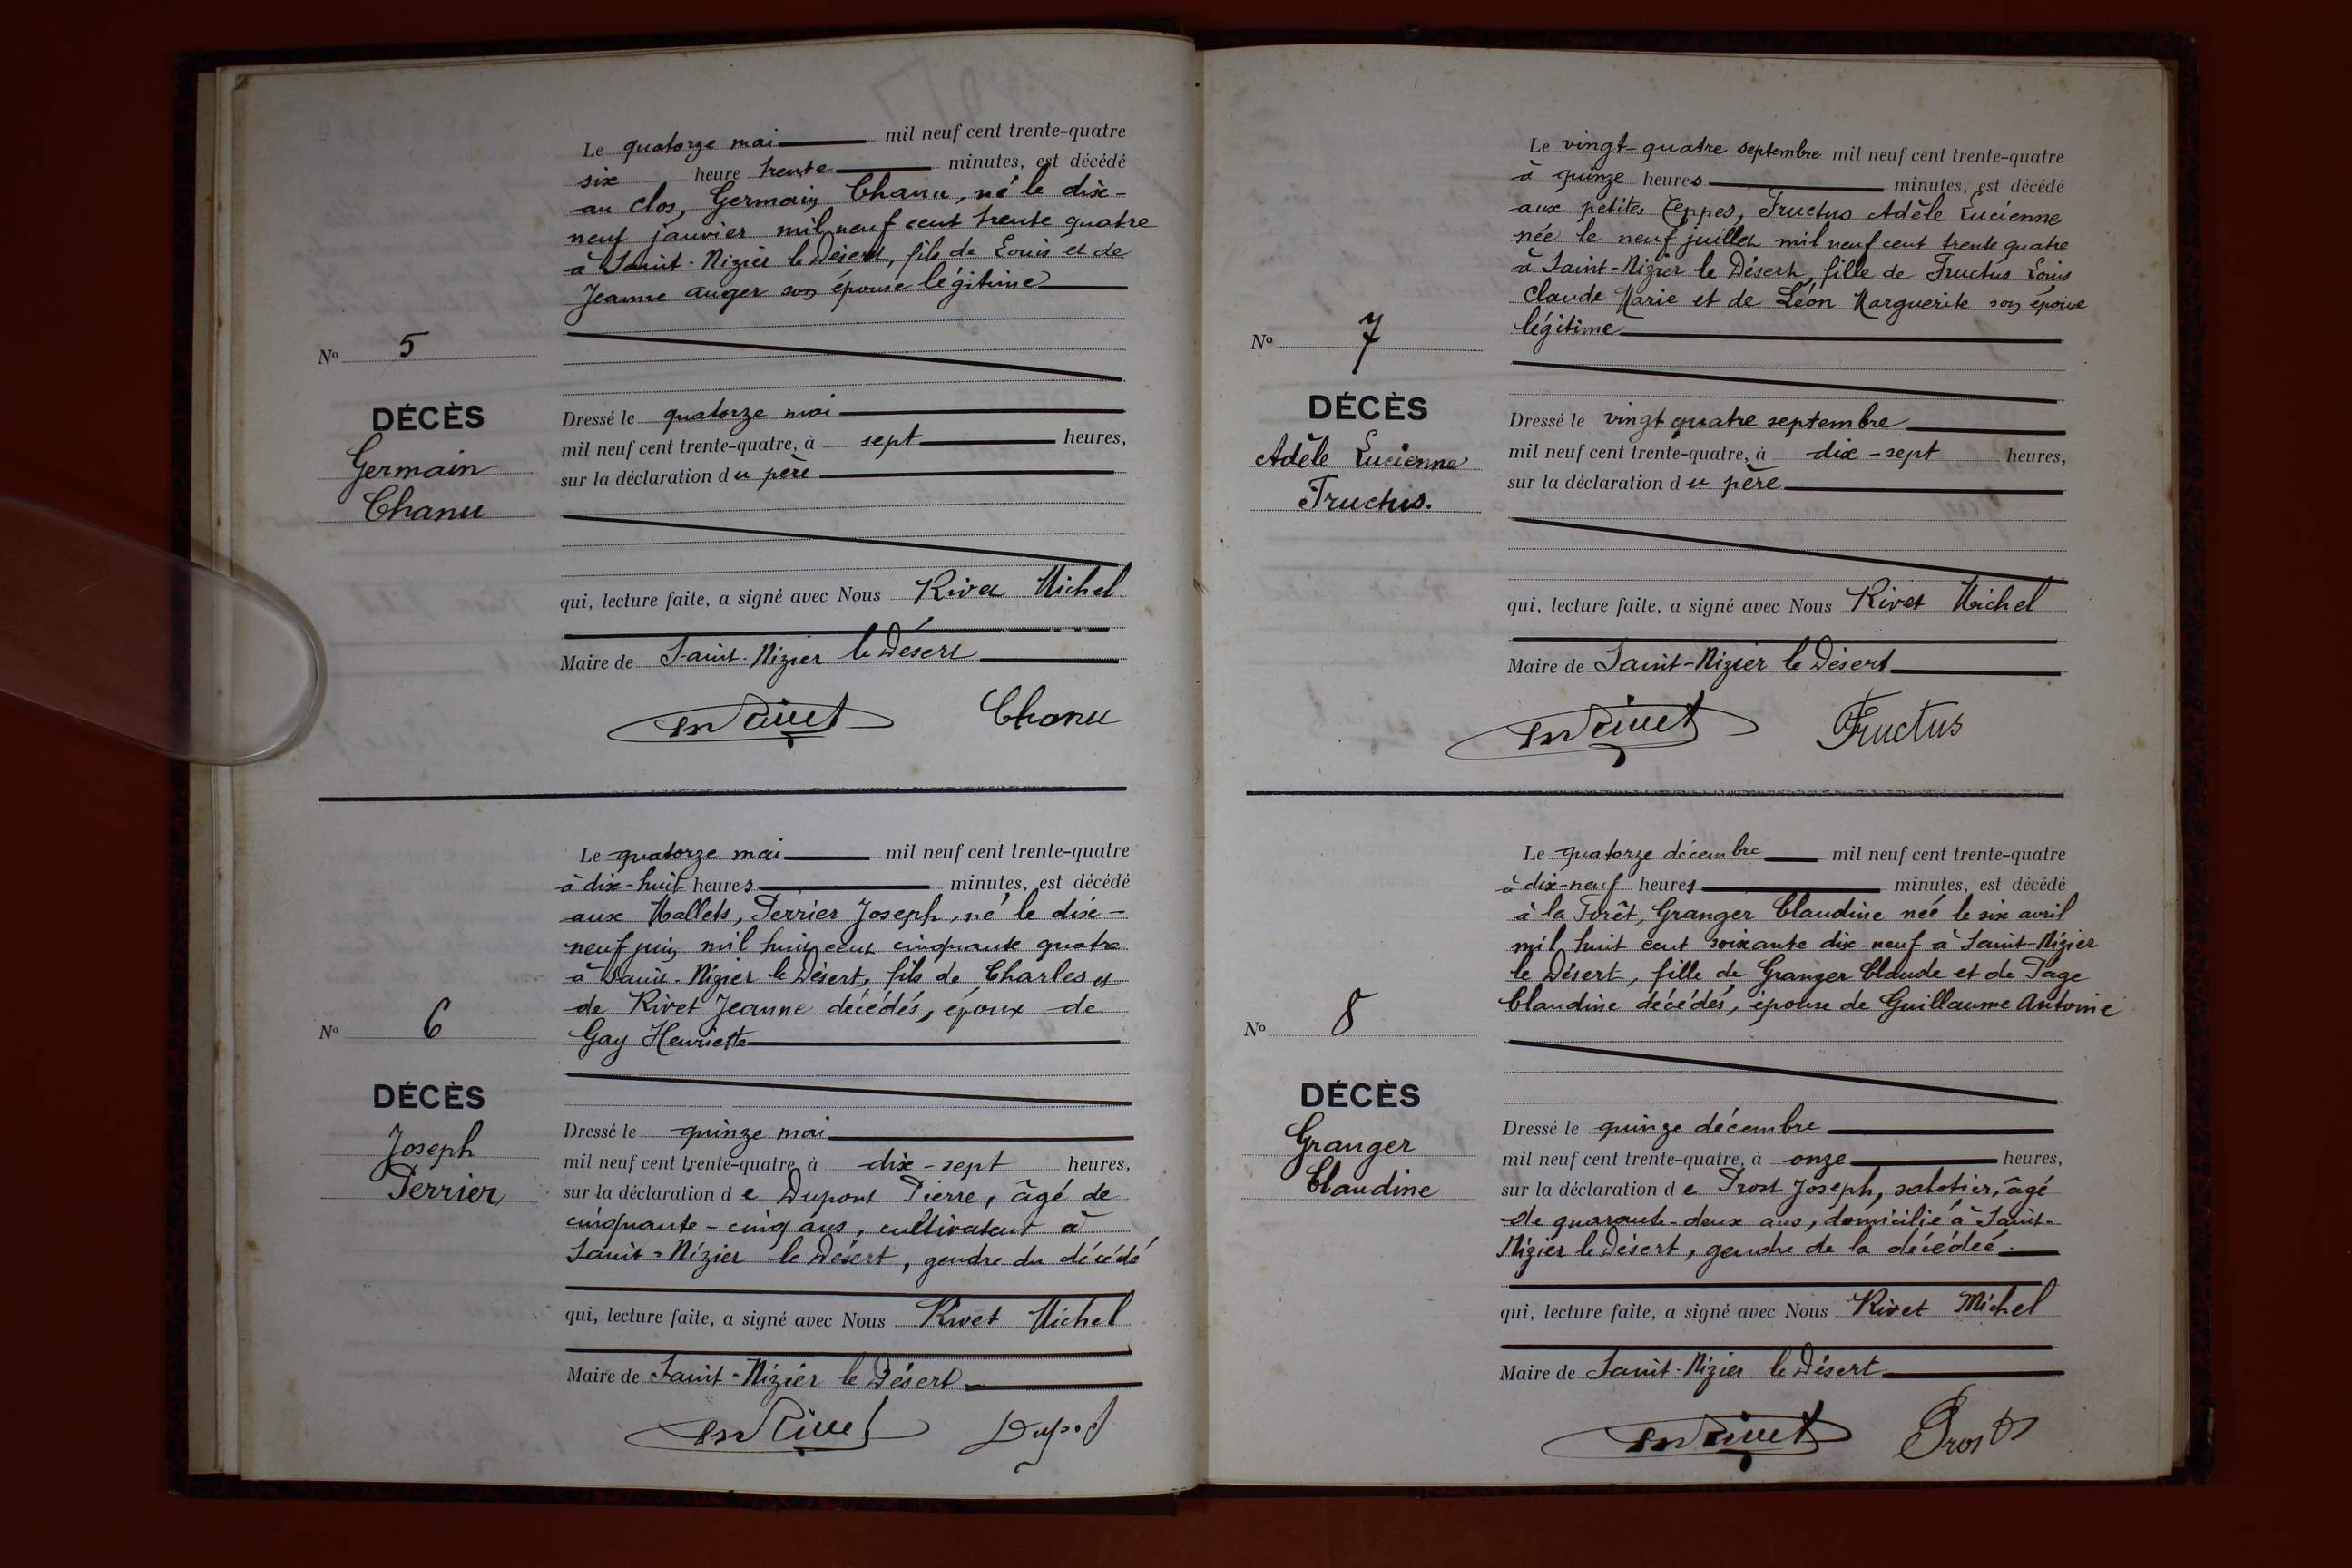 Le quatorze mai mil neuf cent trente-quatre
six heure trente minutes, est décédé
au clos, Germain Chanu, né le dix-
neuf janvier mil neuf cent trente quatre
à Saint-Nizier le Désert, fils de Louis et de
Jeanne Auger son épouse légitime
No 5
DÉCÈS
Germain
Chanu
Dressé le quatorze mai
mil neuf cent trente-quatre, à sept heures,
sur la déclaration du père
qui, lecture faite, a signé avec Nous Rivet Michel
Maire de Saint-Nizier le Désert
M Rivet Chanu
Le quatorze mai mil neuf cent trente-quatre
à dix-huit heures minutes, est décédé
aux Mallets, Perrier Joseph, né le dix-
neuf juin mil huit cent cinquante quatre
à Saint-Nizier le Désert, fils de Charles et
de Rivet Jeanne décédés, époux de
Gay Henriette
No 6
DÉCÈS
Joseph
Perrier
Dressé le quinze mai
mil neuf cent trente-quatre, à dix-sept heures,
sur la déclaration de Dupont Pierre, âgé de
cinquante-cinq ans, cultivateur à
Saint-Nizier le Désert, gendre du décédé
qui, lecture faite, a signé avec Nous Rivet Michel
Maire de Saint-Nizier le Désert
M Rivet
Le vingt-quatre septembre mil neuf cent trente-quatre
à quinze heures minutes, est décédé
aux petites Teppes, Fructus Adèle Lucienne
née le neuf juillet mil neuf cent trente quatre
à Saint-Nizier le Désert, fille de Fructus Louis
Claude Marie et de Léon Marguerite son épouse
légitime
No 7
DÉCÈS
Adèle Lucienne
Fructus.
Dressé le vingt quatre septembre
mil neuf cent trente-quatre, à dix-sept heures,
sur la déclaration du père
qui, lecture faite, a signé avec Nous Rivet Michel
Maire de Saint-Nizier le Désert
M Rivet Fructus
Le quatorze décembre mil neuf cent trente-quatre
à dix-neuf heures minutes, est décédé
à la Forêt, Granger Claudine née le six avril
mil huit cent soixante dix-neuf à Saint-Nizier
le Désert, fille de Granger Claude et de Page
Claudine décédés, épouse de Guillaume Antoine
No 8
DÉCÈS
Granger
Claudine
Dressé le quinze décembre
mil neuf cent trente-quatre, à onze heures,
sur la déclaration de Prost Joseph, sabotier, âgé
de quarante-deux ans, domicilié à Saint-
Nizier le Désert, gendre de la décédée.
qui, lecture faite, a signé avec Nous Rivet Michel
Maire de Saint-Nizier le Désert
M Rivet Prost